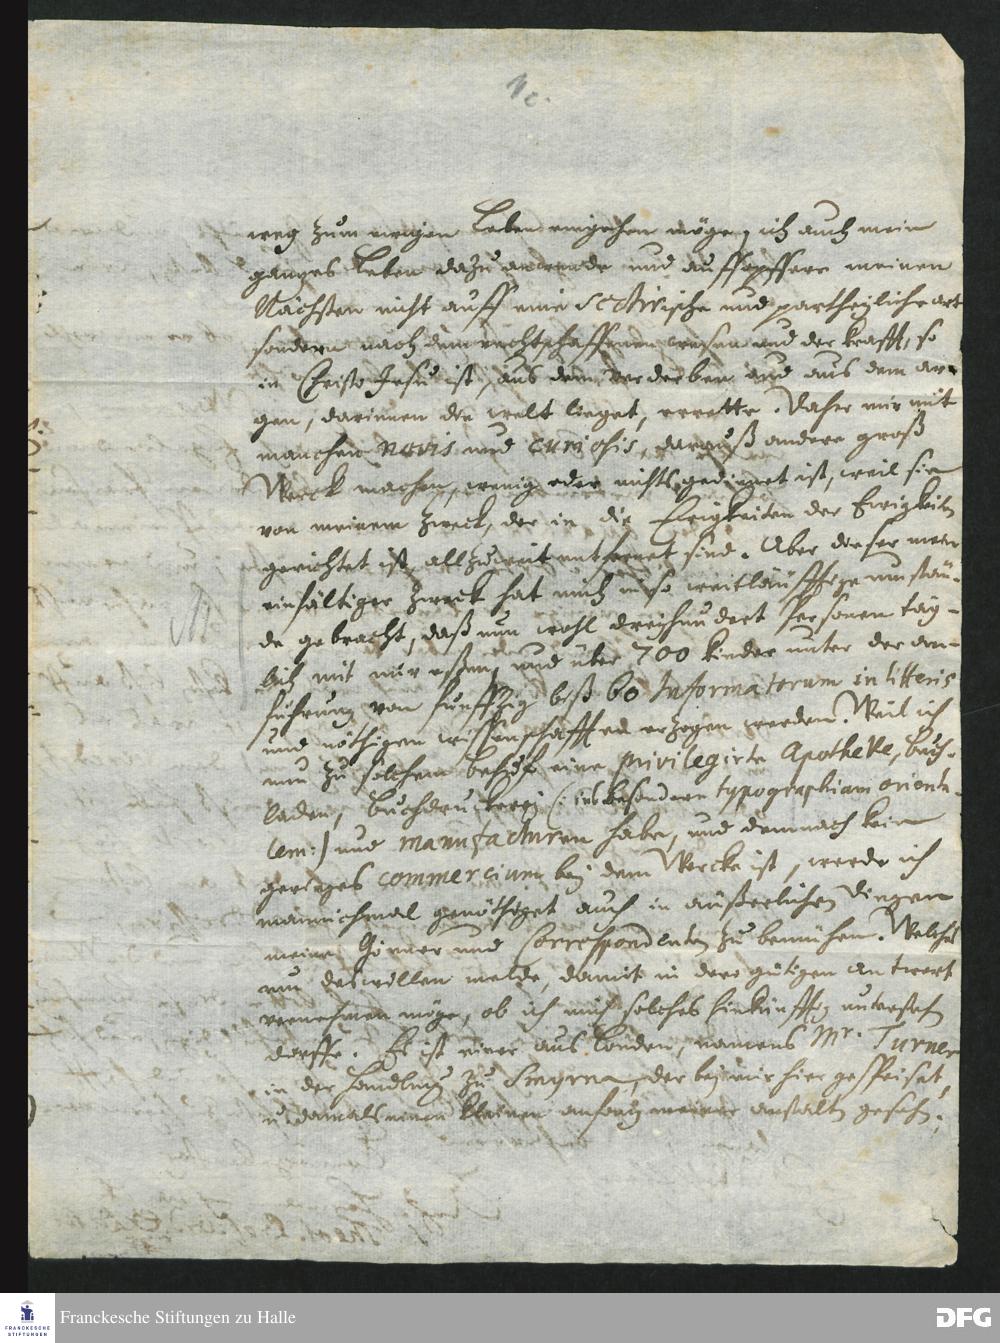 1c.
weg zum ewigen Leben eingehen möge, ich auch mein
ganzes Leben dazu anwende und auffopffere meinen
Nächsten nicht auff eine Sectirische und partheyliche art
sondern nach dem rechtschaffenen wesen und der krafft, so
in Christo Jesu ist, aus dem verderben und aus dem ar-
gen, darinnen die welt lieget, errette. Daher mir mit
manchen novis und curiosis, darauß andere groß
Werck machen, wenig oder nichts gedienet ist, weil sie
von meinem Zweck, der in die Ewigkeiten der Ewigkeiten
gerichtet ist, allzuweit entfernet sind. Aber dieser mein
einfältiger Zweck hat mich in so weitläufftige umstän-
de gebracht, daß nun wohl dreyhundert Personen täg-
lich mit mir eßen, und über 700 kinder unter der an-
führung von funfftzig biß 60 Informatorum in litteris
und nöthigen wissenschafften erzogen werden. Weil ich
nun zu solchem behuf eine privilegirte Apotheke, buch-
laden, buchdruckerey (: insbesondere typographiam orienta-
lem:) und manufacturen habe, und demnach kein
geringes commercium bey dem Wercke ist, werde ich
mannichmal genöthiget auch in äußerlichen Dingen
meine Gönner und Correspondenten zu bemühen. Welches
nun deswillen melde, damit in dero gütigen antwort
vernehmen möge, ob ich mich solches hinkünfftig unterstehen
dorffe. Es ist einer aus Londen, namens Mr. Turner
in der Handlung zu Smyrna, der bey mir hier gespeiset,
u. damals einen kleinen anfang meiner anstalten gesehen;
Franckesche Stiftungen zu Halle
FRANCKESCHE
STIFTUNGEN
DFG